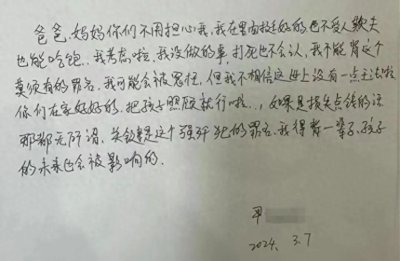 爸爸,妈妈你们不用担心我,我在里面挺好的也不受人欺负
也能吃饱.我考虑啦,我没做的事,打死也不会认,我不能背这
莫须有的罪名,我可能会被冤枉,但我不相信这世上没有一点王法啦
你们在家好好的.把孩子照顾就行啦...,如果是损失点钱的话
那都无所谓,关键是这个强奸犯的罪名.我得背一辈子.孩子
的未来也会被影响的.
2024.3.7